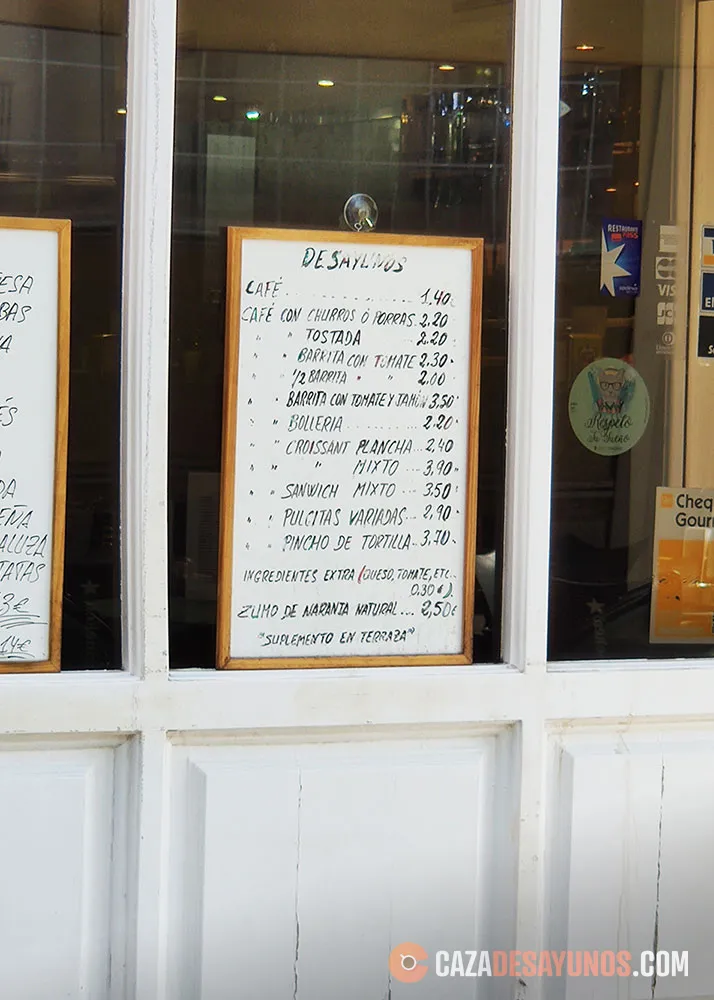 DESAYUNOS
CAFÉ . . . . . . . . . 1.40€
CAFÉ CON CHURROS Ó PORRAS. 2.20
" " TOSTADA 2.20
" " BARRITA CON TOMATE 2.30
" " 1/2 BARRITA " " 2.00
" " BARRITA CON TOMATE Y JAMÓN 3,50
" " BOLLERIA . . . . . . . . 2.20
" " CROISSANT PLANCHA... 2,40
" " " MIXTO ... 3,90
" " SANWICH MIXTO ... 3.50
" " PULGITAS VARIADAS... 2,90
" " PINCHO DE TORTILLA... 3,70
INGREDIENTES EXTRA (QUESO, TOMATE, ETC...
0,30€).
ZUMO DE NARANJA NATURAL... 2,50€
"SUPLEMENTO EN TERRAZA"
ESA
BAS
A
ÉS
DA
EÑA
ALUZA
TATAS
3€
14€
RESTAURANT
PASS
VISA
JCB
Respeto
Tu Sueño
Cheq
Gour
CAZADESAYUNOS.COM